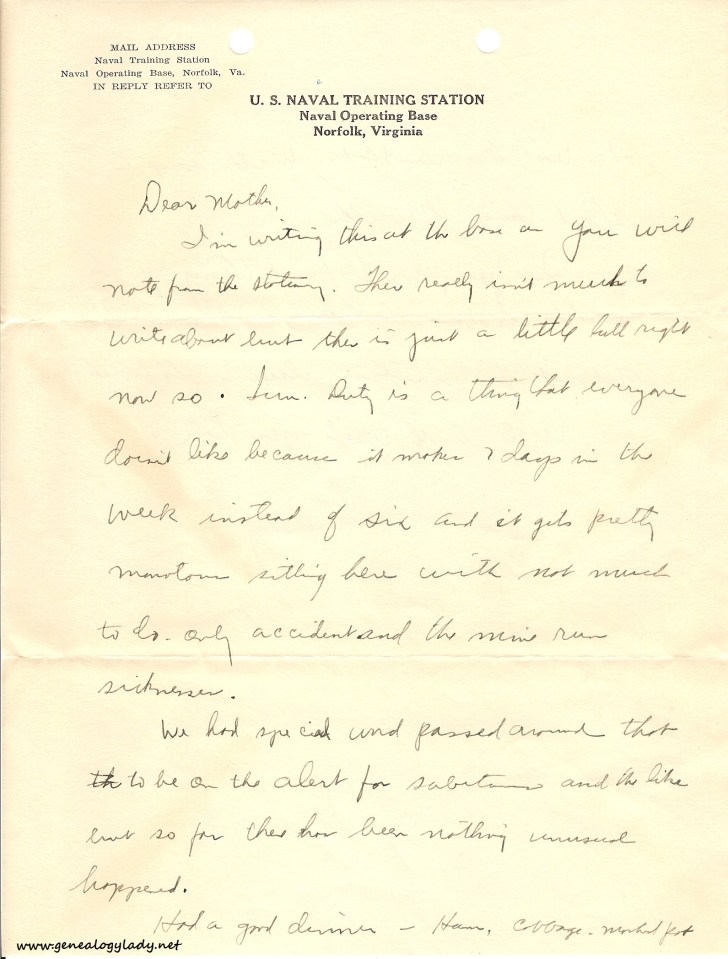 MAIL ADDRESS
Naval Training Station
Naval Operating Base, Norfolk, Va.
IN REPLY REFER TO
U. S. NAVAL TRAINING STATION
Naval Operating Base
Norfolk, Virginia
Dear Mother,
I'm writing this at the base as you will
note from the stationery. There really isn't much to
write about but there is just a little lull right
now so. Duty is a thing that everyone
doesn't like because it makes 7 days in the
week instead of six and it gets pretty
monotonous sitting here with not much
to do - only accidents and the mine run
sicknesses.
We had special word passed around that
th to be on the alert for and the like
but so far there has been nothing unusual
happened.
Had a good dinner - Ham, cabbage - mashed pot
www.genealogylady.net